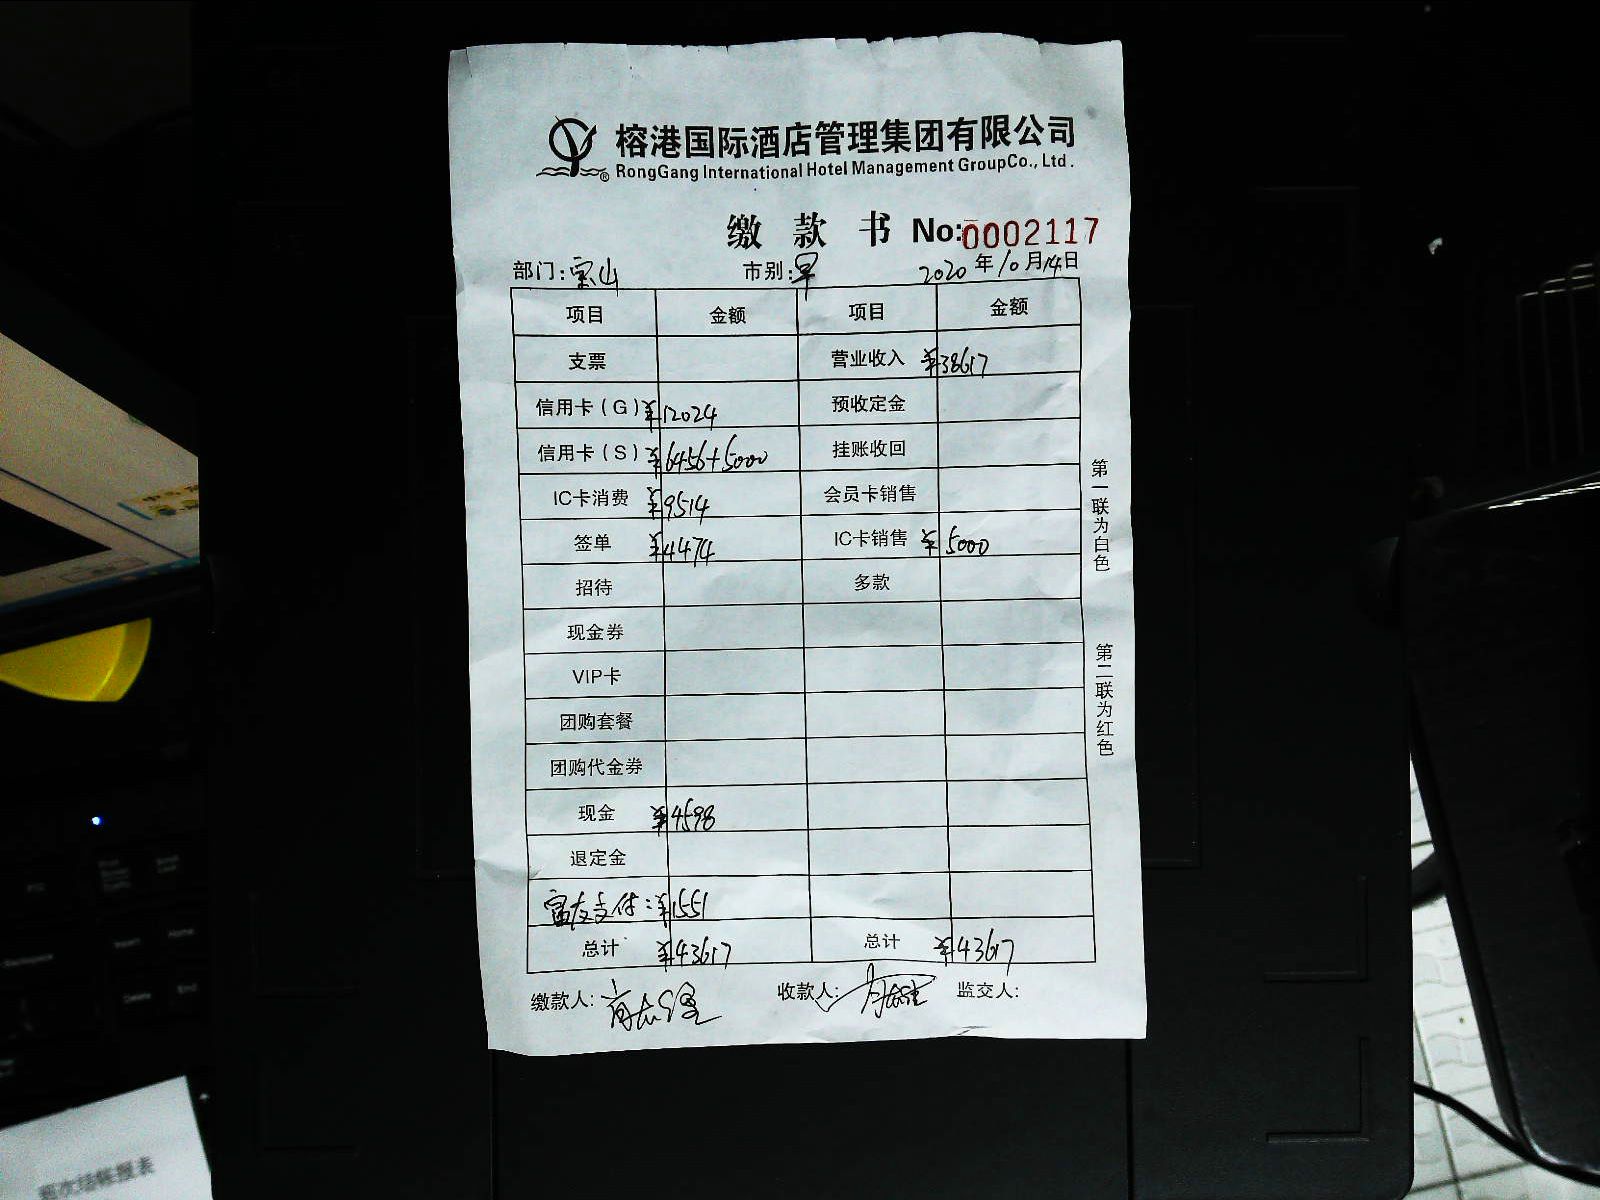 榕港国际酒店管理集团有限公司
RongGang International Hotel Management GroupCo., Ltd.
缴款书 No:0002117
部门:宝山 市别:早 2020年10月14日
项目 金额 项目 金额
支票 营业收入 ¥38617
信用卡(G) ¥12024 预收定金
信用卡(S) ¥6456+5000 挂账收回
IC卡消费 ¥9514 会员卡销售
签单 ¥4474 IC卡销售 ¥5000
招待 多款
现金券
VIP卡
团购套餐
团购代金券
现金 ¥4598
退定金
富友支付:¥1551
总计 ¥43617 总计 ¥43617
缴款人: 收款人: 监交人:
第一联为白色
第二联为红色
Home
Insert
Delete
End